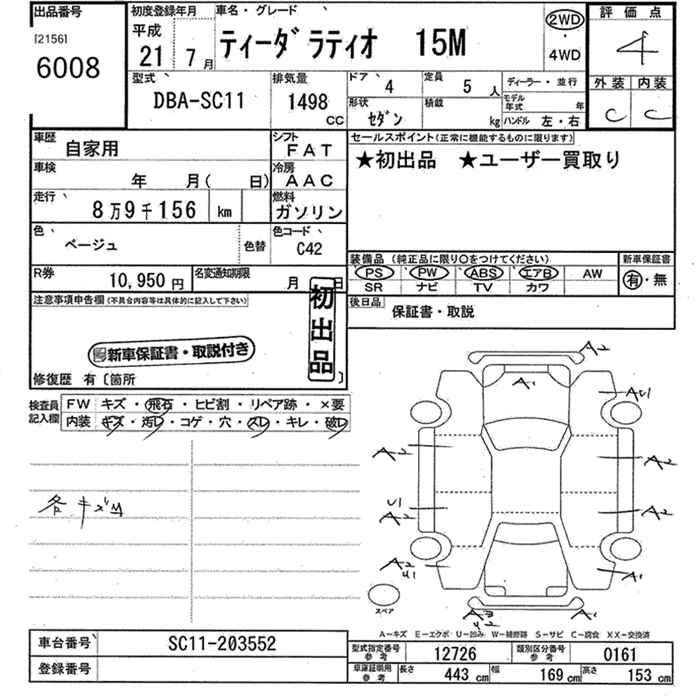 出品番号
[2156]
6008
初度登録年月
平成
21 7月
車名・グレード
ティーダラティオ 15M
2WD
・
4WD
評価点
4
外装 内装
C C
型式
DBA-SC11
排気量
1498
CC
ドア 4
定員 5人
ディーラー・並行
形状
セダン
積載
kg
モデル年式 年
ハンドル 左・右
車歴
自家用
シフト
FAT
車検
年 月( 日)
冷房
AAC
走行
8万9千156 km
燃料
ガソリン
色
ベージュ
色替
色コード
C42
R券
10,950円
名変通知期限
月 日
セールスポイント(正常に機能するものに限ります)
★初出品 ★ユーザー買取り
装備品(純正品に限り○をつけてください)
新車保証書
PS PW ABS エアB AW
SR ナビ TV カワ
有・無
後日品
保証書・取説
注意事項申告欄(不具合内容等は具体的に記入して下さい)
初出品
新車保証書・取説付き
修復歴 有〔箇所 〕
検査員
記入欄
FW キズ・飛石・ヒビ割・リペア跡・×要
内装 キズ・汚レ・コゲ・穴・スレ・キレ・破レ
各キズ
A2
A1
AU1
A2
A2
U1
A2
A2
A2
U1
A1
A3
U2
A1
スペア
A-キズ E-エクボ U-凹み W-補修跡 S-サビ C-腐食 XX-交換済
車台番号
SC11-203552
登録番号
型式指定番号
参考
12726
類別区分番号
参考
0161
車庫証明用
参考
長さ 443cm
幅 169cm
高さ 153cm